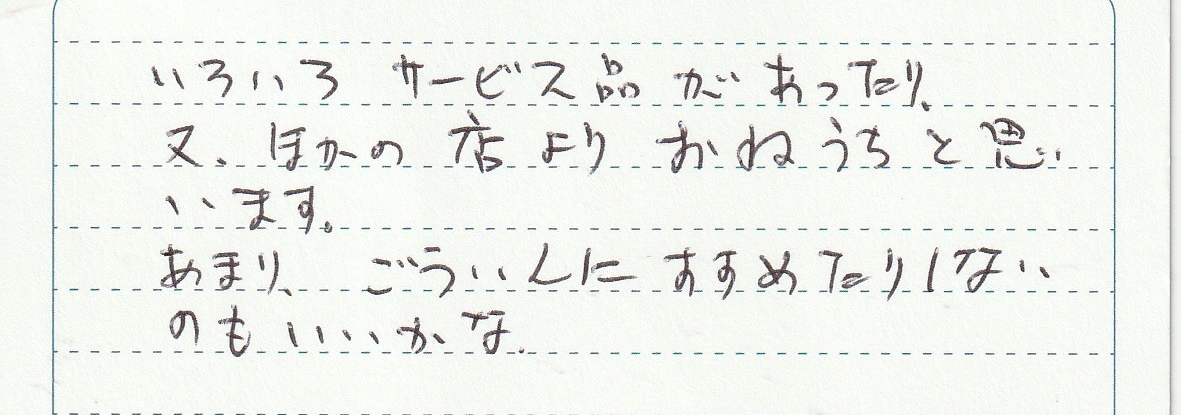 いろいろ サービス品があったり、
又、ほかの店よりおねうちと思
います。
あまり、ごういんにすすめたりしない
のもいいかな。